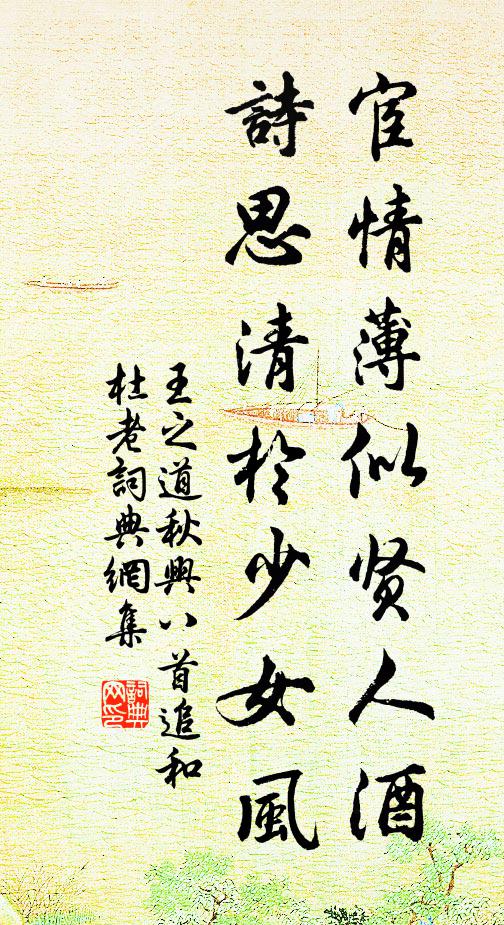 宦情薄似贤人酒
詩思清於少女風
王之道秋興八首追和
杜老詞典網集
詞典
网印